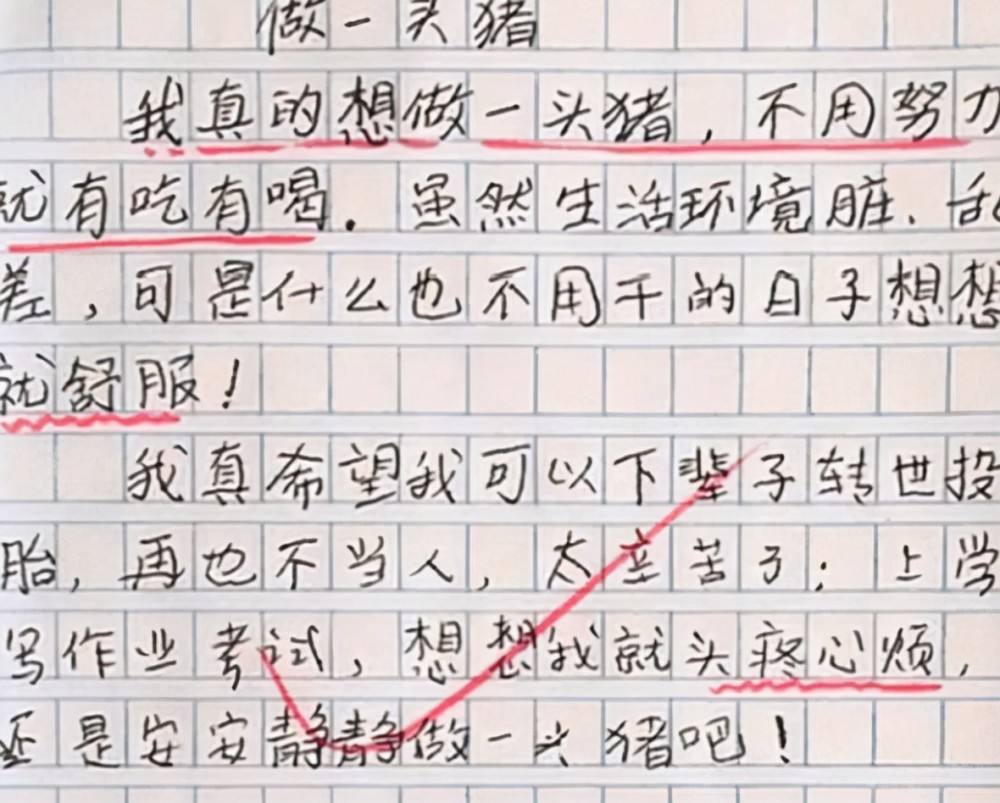 做一头猪
我真的想做一头猪，不用努力
就有吃有喝。虽然生活环境脏、乱
差，可是什么也不用干的日子想想
就舒服！
我真希望我可以下辈子转世投
胎，再也不当人，太辛苦了；上学
写作业考试，想想我就头疼心烦，
还是安安静静做一头猪吧！